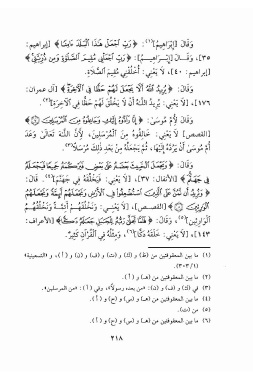 وَقَالَ: [إِبْرَاهِيمُ](١): ﴿رَبِّ ٱجْعَلْ هَٰذَا ٱلْبَلَدَ ءَامِنًا﴾ [إبراهيم:
٣٥]، وَقَالَ [إِبْرَاهِيمُ]: ﴿رَبِّ ٱجْعَلْنِي مُقِيمَ ٱلصَّلَوٰةِ وَمِن ذُرِّيَّتِي﴾
[إبراهيم: ٤٠]، لَا يَعْنِي: اُخْلُقْنِي مُقِيمَ الصَّلَاةِ.
وَقَالَ: ﴿يُرِيدُ ٱللَّهُ أَلَّا يَجْعَلَ لَهُمْ حَظًّا فِى ٱلْآخِرَةِ﴾ [آل عمران:
١٧٦]، [لَا يَعْنِي: يُرِيدُ اللَّهُ أَنْ لَا يَخْلُقَ لَهُمْ حَظًّا فِي الْآخِرَةِ](٢).
وَقَالَ لِأُمِّ مُوسَىٰ: ﴿إِنَّا رَآدُّوهُ إِلَيْكِ وَجَاعِلُوهُ مِنَ ٱلْمُرْسَلِينَ﴾
[القصص] لَا يَعْنِي: خَالِقُوهُ مِنَ الْمُرْسَلِينَ، لِأَنَّ اللَّهَ تَعَالَىٰ وَعَدَ
أُمَّ مُوسَىٰ أَنْ يَرُدَّهُ إِلَيْهَا، ثُمَّ يَجْعَلُهُ مِنْ بَعْدِ ذَلِكَ مُرْسَلًا(٣).
وَقَالَ: ﴿وَيَجْعَلَ ٱلْخَبِيثَ بَعْضَهُۥ عَلَىٰ بَعْضٍ فَيَرْكُمَهُۥ جَمِيعًا فَيَجْعَلَهُۥ
فِى جَهَنَّمَ﴾ [الأنفال: ٣٧]، [لَا يَعْنِي: فَيَخْلُقَهُ فِي جَهَنَّمَ](٤). قَالَ:
﴿وَنُرِيدُ أَن نَّمُنَّ عَلَى ٱلَّذِينَ ٱسْتُضْعِفُوا۟ فِى ٱلْأَرْضِ وَنَجْعَلَهُمْ أَئِمَّةً وَنَجْعَلَهُمُ
ٱلْوَٰرِثِينَ﴾ [القصص]، [لَا يَعْنِي: وَنَخْلُقَهُمْ أَئِمَّةً وَنَخْلُقَهُمُ
الْوَارِثِينَ](٥)، وَقَالَ: ﴿فَلَمَّا تَجَلَّىٰ رَبُّهُۥ لِلْجَبَلِ جَعَلَهُۥ دَكًّا﴾ [الأعراف:
١٤٣]، [لَا يَعْنِي: خَلَقَهُ دَكًّا](٦)، وَمِثْلُهُ فِي الْقُرْآنِ كَثِيرٌ.
(١) ما بين المعقوفتين من (ظ) و (ك) و (ت) و (ف) و (ن) و (أ)، و «التسعينية»
(٢) ما بين المعقوفتين من (هـ) و (أ).
(٣) في (ك) و (ف) و (ن): «من بعده رسولًا»، وفي (أ): «من المرسلين».
(٤) ما بين المعقوفتين من (هـ) و (س) و (ح) و (أ).
(٥) من (ت).
(٦) ما بين المعقوفتين من (هـ) و (س) و (ح) و (أ).
٢١٨